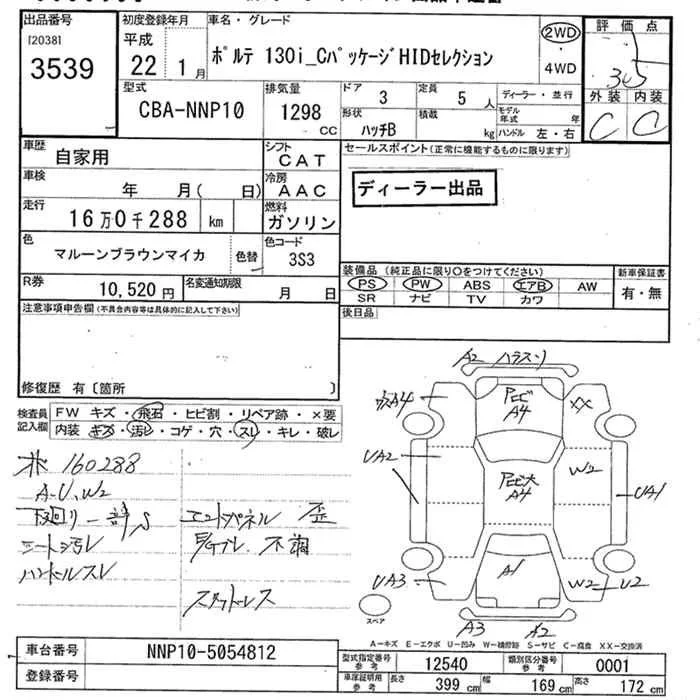 出品番号 初度登録年月 車名・グレード 評価点
[2038]
3539
平成
22 1月
ポルテ 130i_CパッケージHIDセレクション
2WD
・
4WD
3.5
外装 内装
C C
型式 排気量 ドア 3 定員 5人 ディーラー・並行
CBA-NNP10 1298cc
形状 ハッチB 積載 kg モデル年式 年
ハンドル 左・右
車歴 自家用 シフト CAT
セールスポイント(正常に機能するものに限ります)
車検 年 月( 日) 冷房 AAC
ディーラー出品
走行 16万0千288 km 燃料 ガソリン
色 マルーンブラウンマイカ 色替 色コード 3S3
R券 10,520円 名変通知期限 月 日
装備品 (純正品に限り○をつけてください) 新車保証書
PS PW ABS エアB AW 有・無
SR ナビ TV カワ
注意事項申告欄(不具合内容等は具体的に記入して下さい)
後日品
修復歴 有〔箇所 〕
検査員記入欄
FW キズ・飛石・ヒビ割・リペア跡・×要
内装 キズ・汚レ・コゲ・穴・スレ・キレ・破レ
160288
A・U、W2
下回リ 一部S
シート汚レ
ハンドルスレ
エンドパネル 歪
不調
スタッドレス
A2
A4
A4
XX
UA2
A4
W2
UA1
UA3
A1
W2 U2
A3
A2
スペア
A-キズ E-エクボ U-凹み W-補修跡 S-サビ C-腐食 XX-交換済
車台番号 NNP10-5054812
登録番号
型式指定番号参考 12540 類別区分番号参考 0001
車庫証明用参考 長さ 399 cm 幅 169 cm 高さ 172 cm